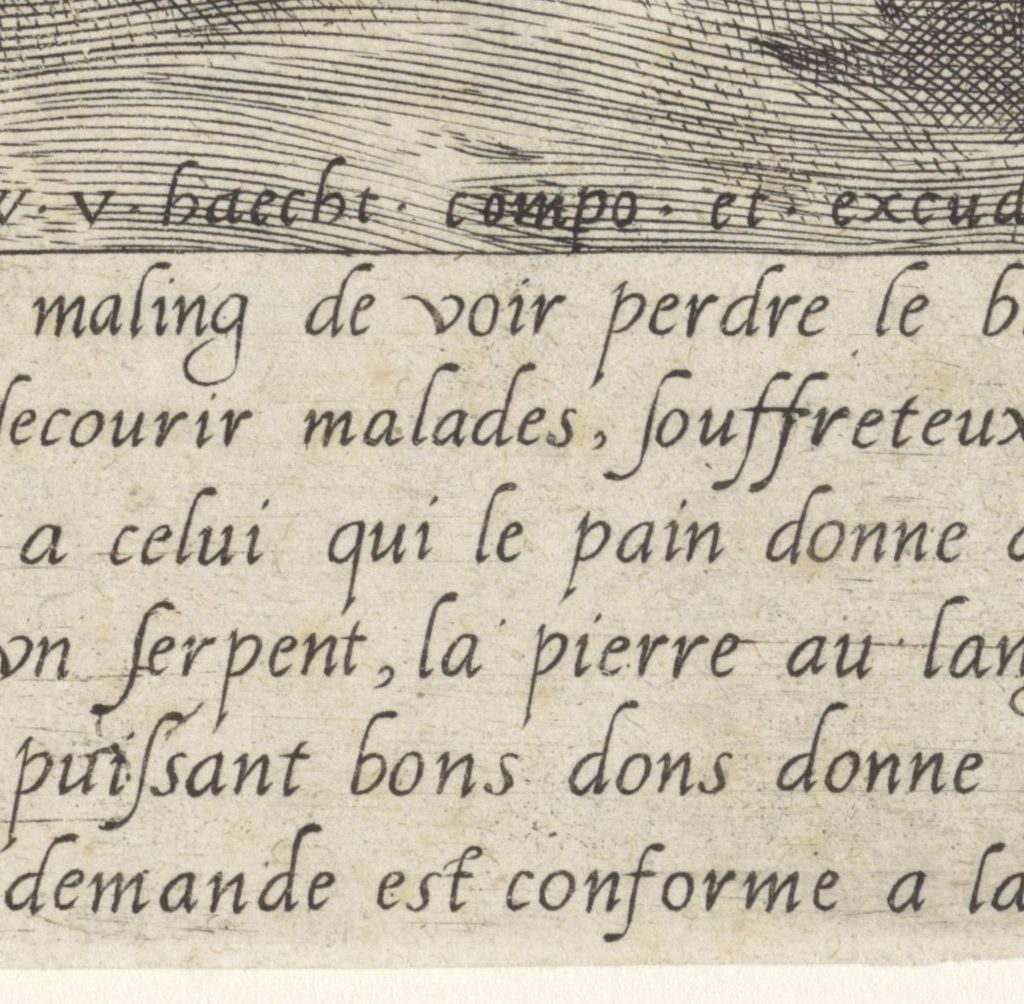 v. haecht. compo. et. excud
maling de voir perdre le
ſecourir malades, ſouffreteux
a celui qui le pain donne
vn ſerpent, la pierre au lan
puiſsant bons dons donne
demande est conforme a la